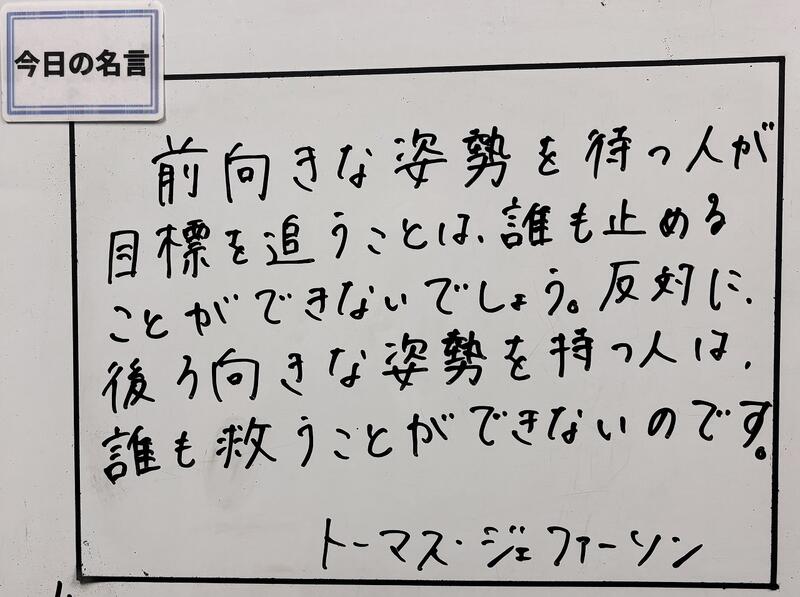 今日の名言
前向きな姿勢を待つ人が
目標を追うことは、誰も止める
ことができないでしょう。反対に、
後ろ向きな姿勢を持つ人は、
誰も救うことができないのです。
トーマス・ジェファーソン